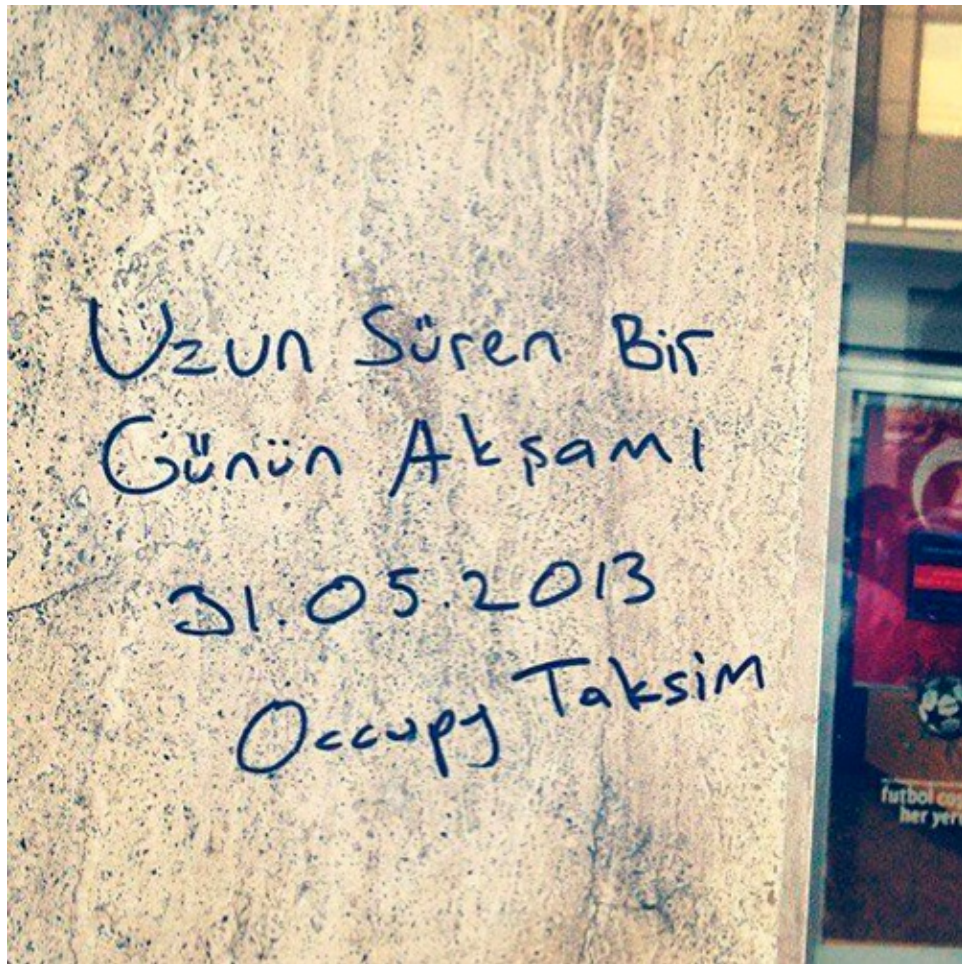 Uzun Süren Bir
Günün Akşamı
31.05.2013
Occupy Taksim
futbol
her